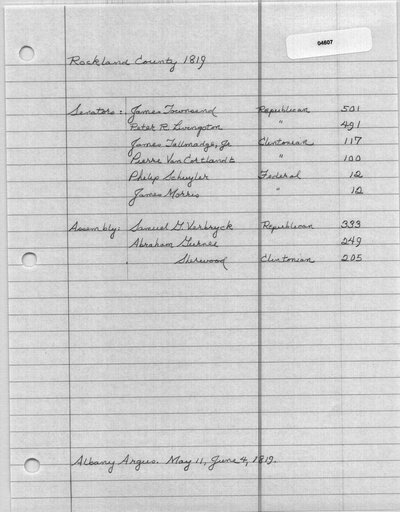 04807
Rockland County 1819
Senators: James Townsend Republican 501
Peter R. Livingston " 491
James Tallmadge, Jr Clintonian 117
Pierre Van Cortlandt " 100
Philip Schuyler Federal 12
James Morris " 12
Assembly: Samuel G. Verbryck Republican 333
Abraham Gurnee 249
Sherwood Clintonian 205
Albany Argus. May 11, June 4, 1819.